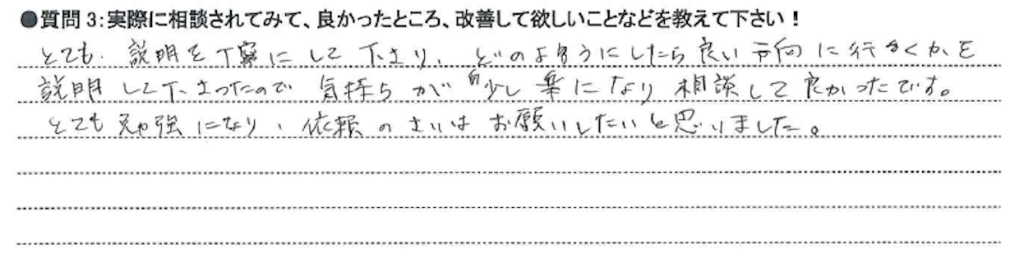 ●質問3:実際に相談されてみて、良かったところ、改善して欲しいことなどを教えて下さい!
とても、説明を丁寧にして下さり、どのようにしたら良い方向に行くかを
説明して下さったので気持ちが少し楽になり相談して良かったです。
とても勉強になり、依頼のさいはお願いしたいと思いました。